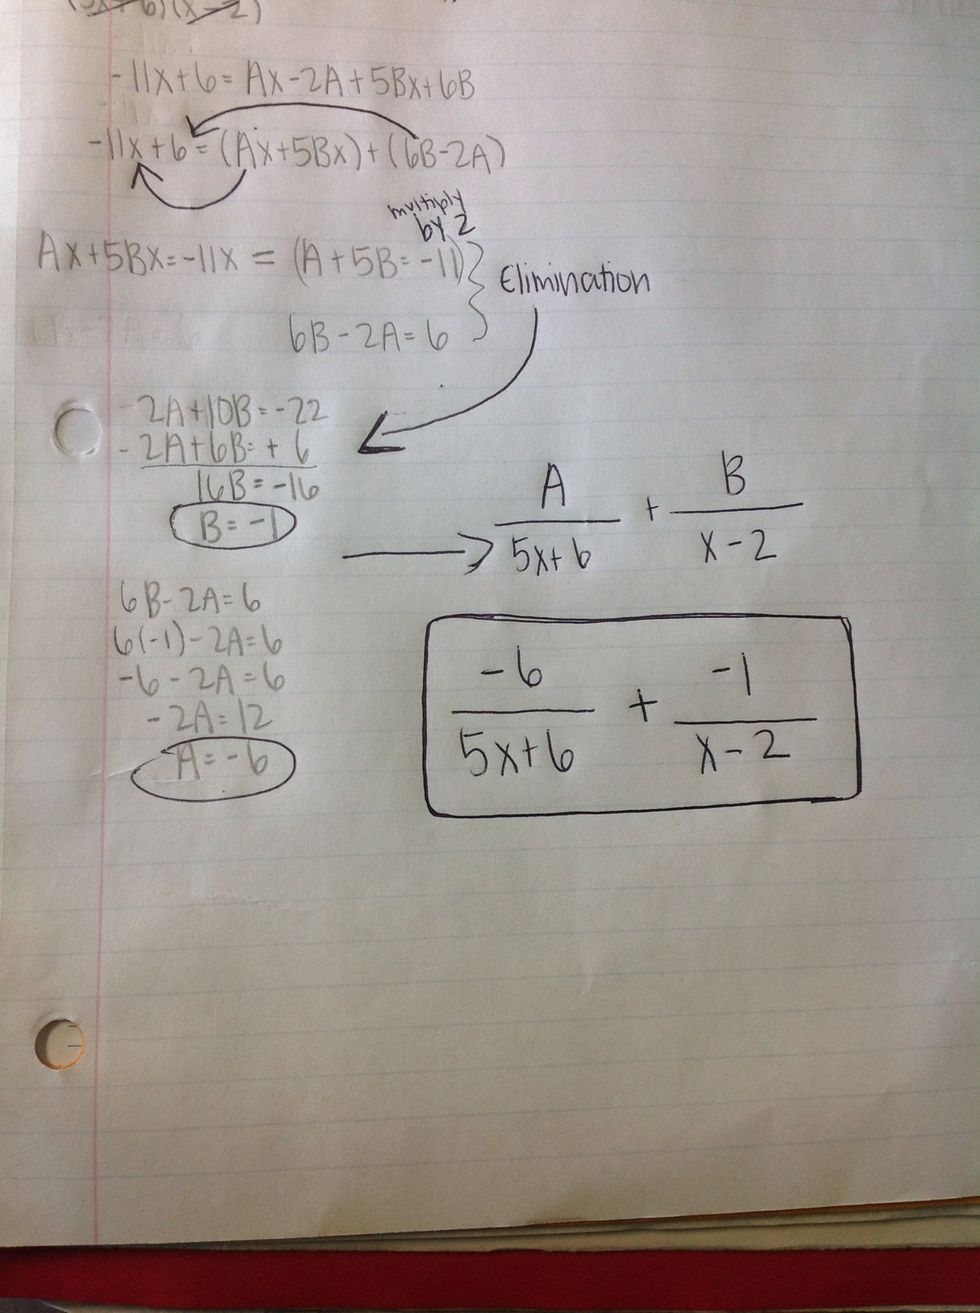 (5x+6)(x-2)
-11x+6 = Ax-2A+5Bx+6B
-11x+6 = (Ax+5Bx)+(6B-2A)
multiply
by 2
Ax+5Bx=-11x = (A+5B=-11)
Elimination
6B-2A=6
2A+10B=-22
-2A+6B=+6
16B=-16
B=-1
6B-2A=6
6(-1)-2A=6
-6-2A=6
-2A=12
A=-6
A/5x+6 + B/x-2
-6/5x+6 + -1/x-2